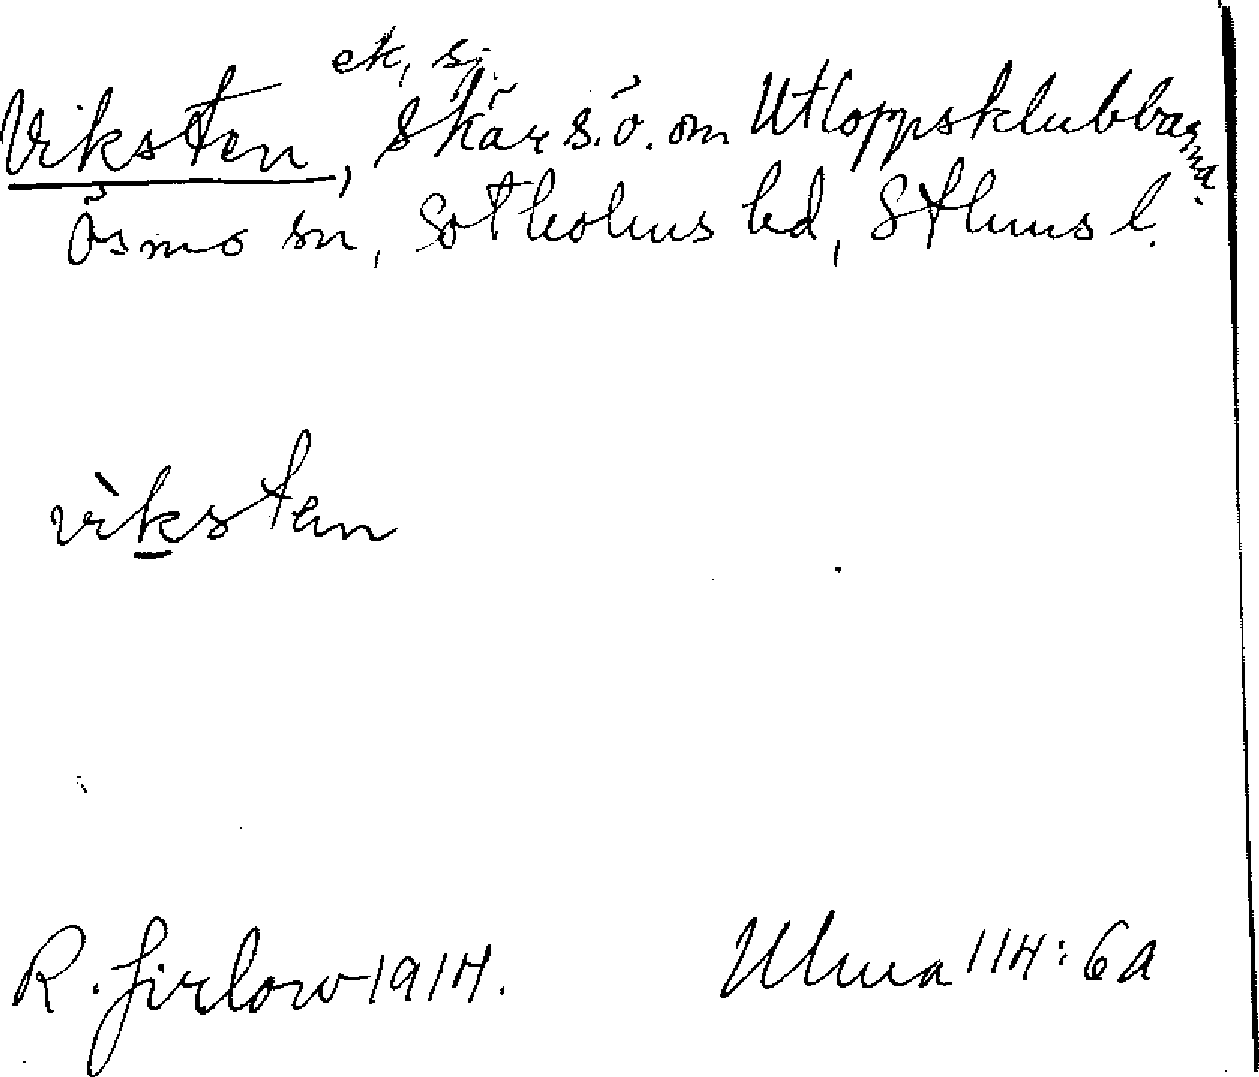 ek, s.
Viksten, skär s.ö. om Utloppsklubbarna.
Ösmo sn, Sotholms hd, Sthms l.
vìksten
R. Jirlow 1914.
Ulma 114:6a